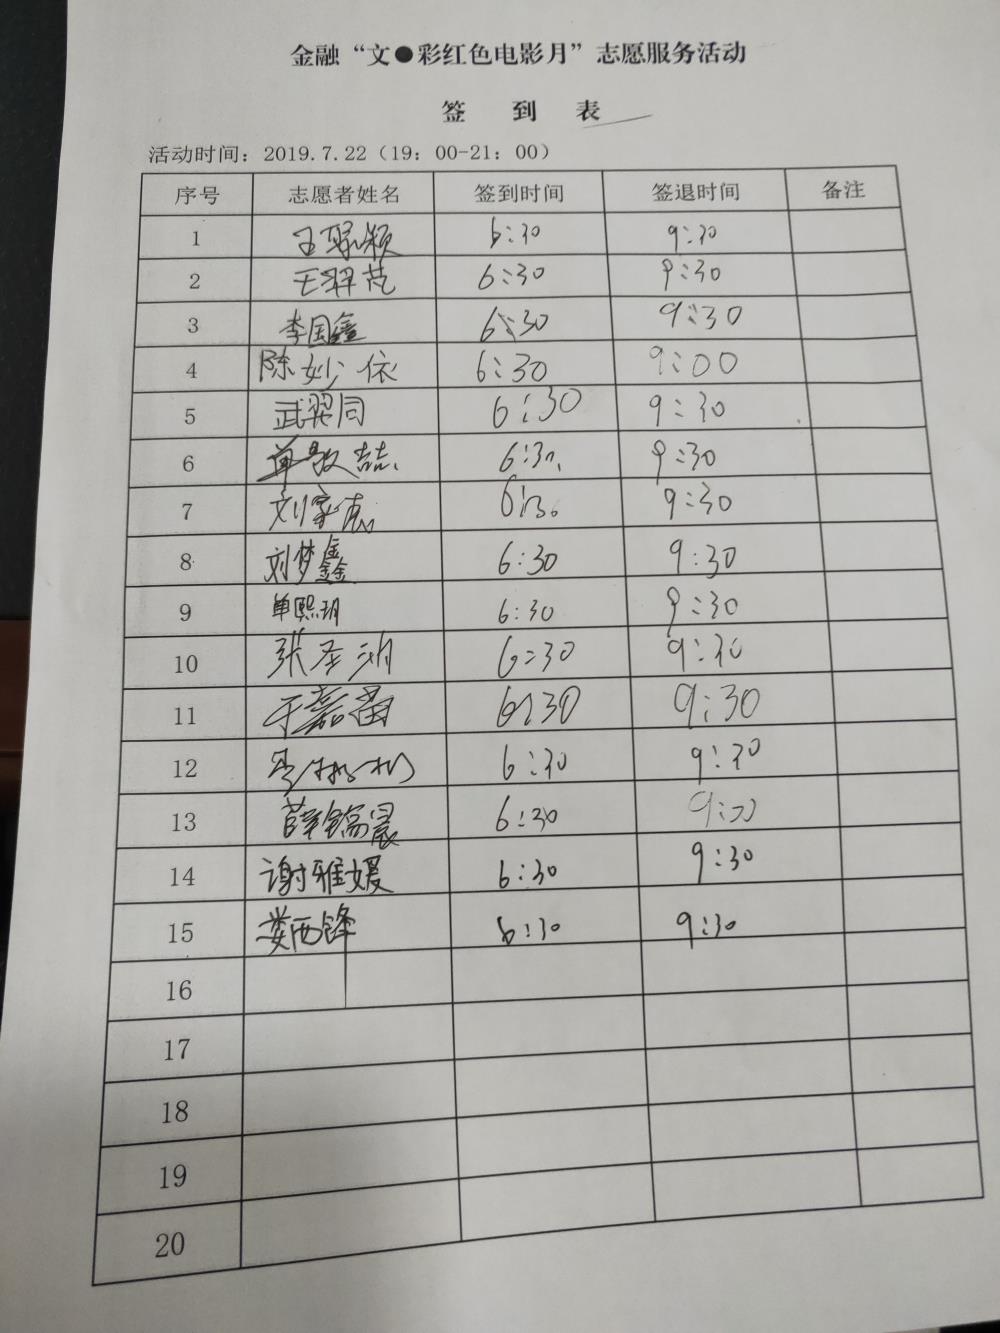 金融“文●彩红色电影月”志愿服务活动
签 到 表
活动时间：2019.7.22（19：00-21：00）
序号 志愿者姓名 签到时间 签退时间 备注
1 王 颖 6:30 9:30
2 王羿 6:30 9:30
3 李国鑫 6:30 9:30
4 陈妙依 6:30 9:00
5 武翌同 6:30 9:30
6 单敬喆 6:30 9:30
7 刘家惠 6:30 9:30
8 刘梦鑫 6:30 9:30
9 单熙玥 6:30 9:30
10 张圣 6:30 9:30
11 于嘉苗 6:30 9:30
12 6:30 9:30
13 薛 晨 6:30 9:30
14 谢雅媛 6:30 9:30
15 娄西锋 6:30 9:30
16
17
18
19
20